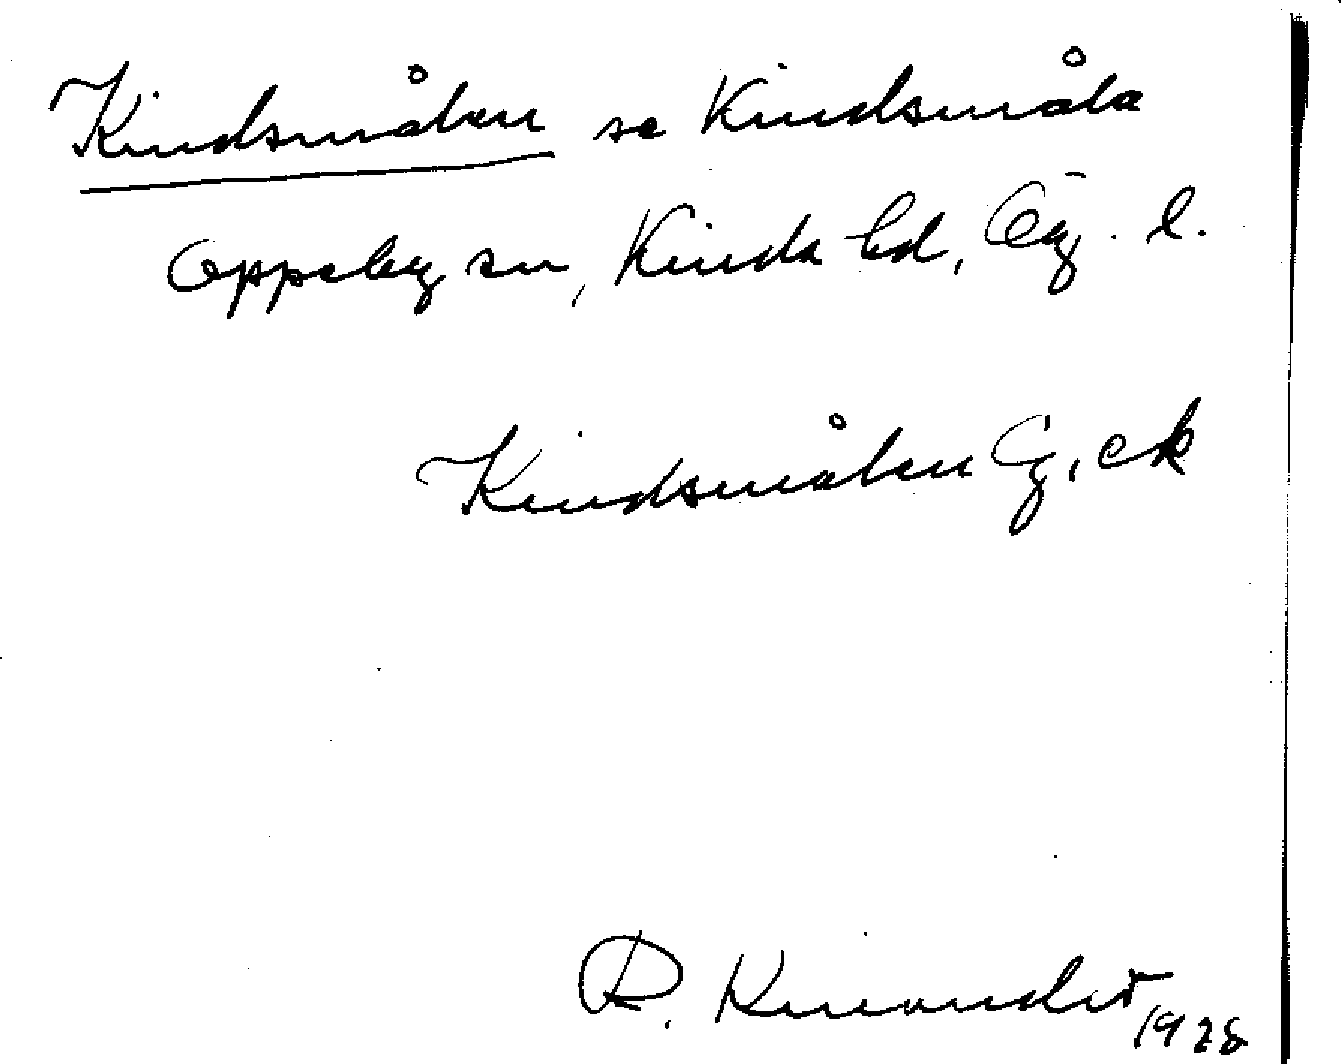 Kindsmålen se Kindsmåla
Oppeby sn, Kinda hd, Ög. l.
Kindsmålen Eg, ek
R. Kinander 1928